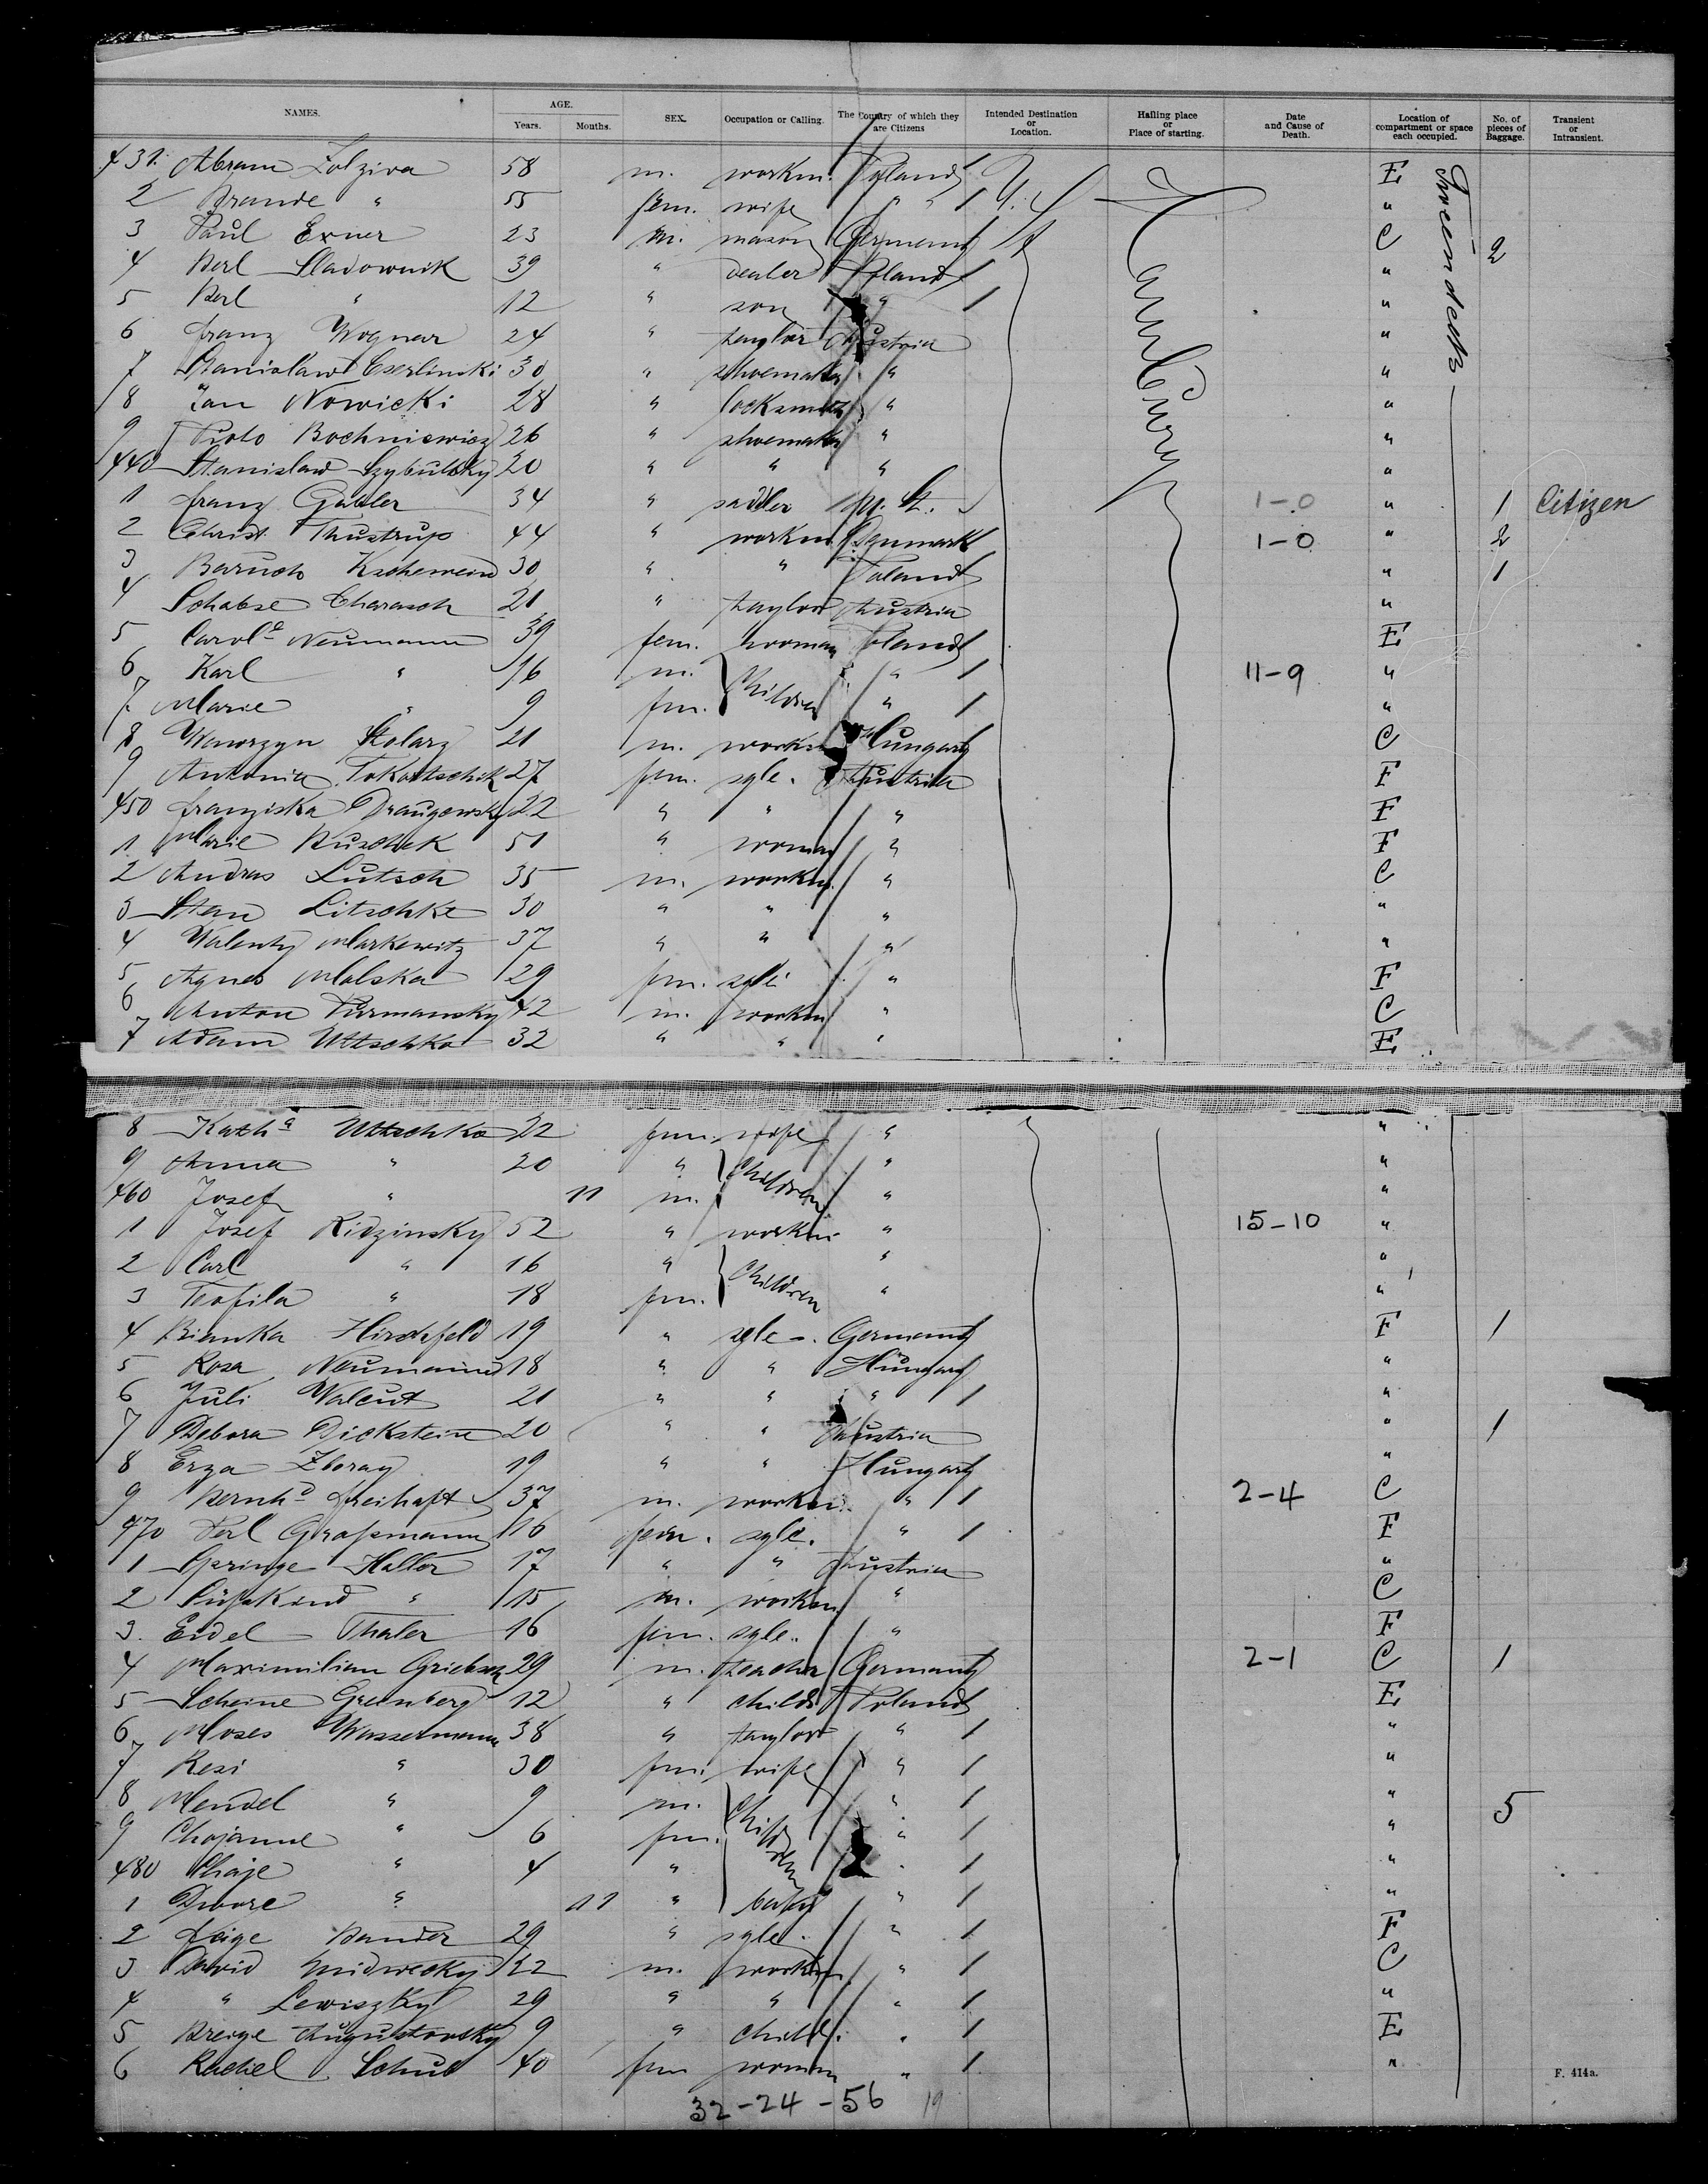 NAMES. AGE. Years. Months. SEX. Occupation or Calling. The Country of which they are Citizens Intended Destination or Location. Hailing place or Place of starting. Date and Cause of Death. Location of compartment or space each occupied. No. of pieces of Baggage. Transient or Intransient.
431. Abram Zolziva 58 m. workm. Poland E
2 Brande " 55 fem. wife " " "
3 Paul Exner 23 m. mason Germany C 2
4 Berl Sladownik 39 " dealer Poland "
5 Berl " 12 " son " "
6 Franz Wognar 24 " taylor Austria "
7 Stanislaw Cserlinski 30 " shoemaker " "
8 Jan Nowicki 28 " locksmith " "
9 Pioto Bochniewicz 26 " shoemaker " "
440 Stanislaw Szybulsky 20 " " " "
1 Franz Gabler 34 " sadler " 1-0 " 1 Citizen
2 Christ. Thustrup 44 " workm. Denmark 1-0 " 2
3 Baruch 30 " " Poland " 1
4 Schabse Charasch 21 " taylor Austria "
5 Carole Neumann 39 fem. woman Poland E
6 Karl " 16 m. Children " 11-9 "
7 Marie " 9 fm. " "
8 Wawrzyn Stolarz 21 m. workm Hungary C
9 Antonia Tokartschik 27 fem. sgle. Austria F
450 Franziska Draugowsky 22 " " " F
1 Marie Buschek 51 " woman " F
2 Andras Lutsch 35 m. workm. " C
3 Stan Litschke 30 " " " "
4 Walenty Markewitz 37 " " " "
5 Agnes Malska 29 fm. sgle " F
6 Anton Purmansky 42 m. workm " C
7 Adam Uttschka 32 " " " E
Hamburg
Zwischendeck
8 Katha Uttschka 22 fem. wife " "
9 Anna " 20 " Children " "
460 Josef " 11 m. " "
1 Josef Ridzinsky 52 " workm " 15-10 "
2 Carl " 16 " Children " "
3 Teofila " 18 fm. " "
4 Bianka Hirchfeld 19 " sgle. Germany F 1
5 Rosa Neumann 18 " " Hungary "
6 Juli Walcut 21 " " " "
7 Debora Dickstein 20 " " Austria " 1
8 Erza Zboray 19 " " Hungary "
9 Bernhd Freihaft 37 m. workm. " 2-4 C
470 Perl Graßmann 16 fem. sgle. " F
1 Springe Haller 17 " " Austria "
2 Süßkind " 15 m. workm " C
3. Eidel Thaler 16 fem. sgle. " F
4 Maximilian Griebsch 29 m. teacher Germany 2-1 C 1
5 Scheine Greenberg 12 " child Poland E
6 Moses Wassermann 38 " taylor " "
7 Resi " 30 fm. wife " "
8 Mendel " 9 m. Children " " 5
9 Chojanne " 6 fm. " "
480 Chaje " 4 " " "
1 Dwore " 11 " baby " "
2 Feige Bander 29 " sgle. " F
3 David 22 m. workm. " C
4 " Lewiszky 29 " " " "
5 Breige Augustowsky 9 " child. " E
6 Rachel Schub 40 fem woman " "
32-24-56 19
F. 414a.